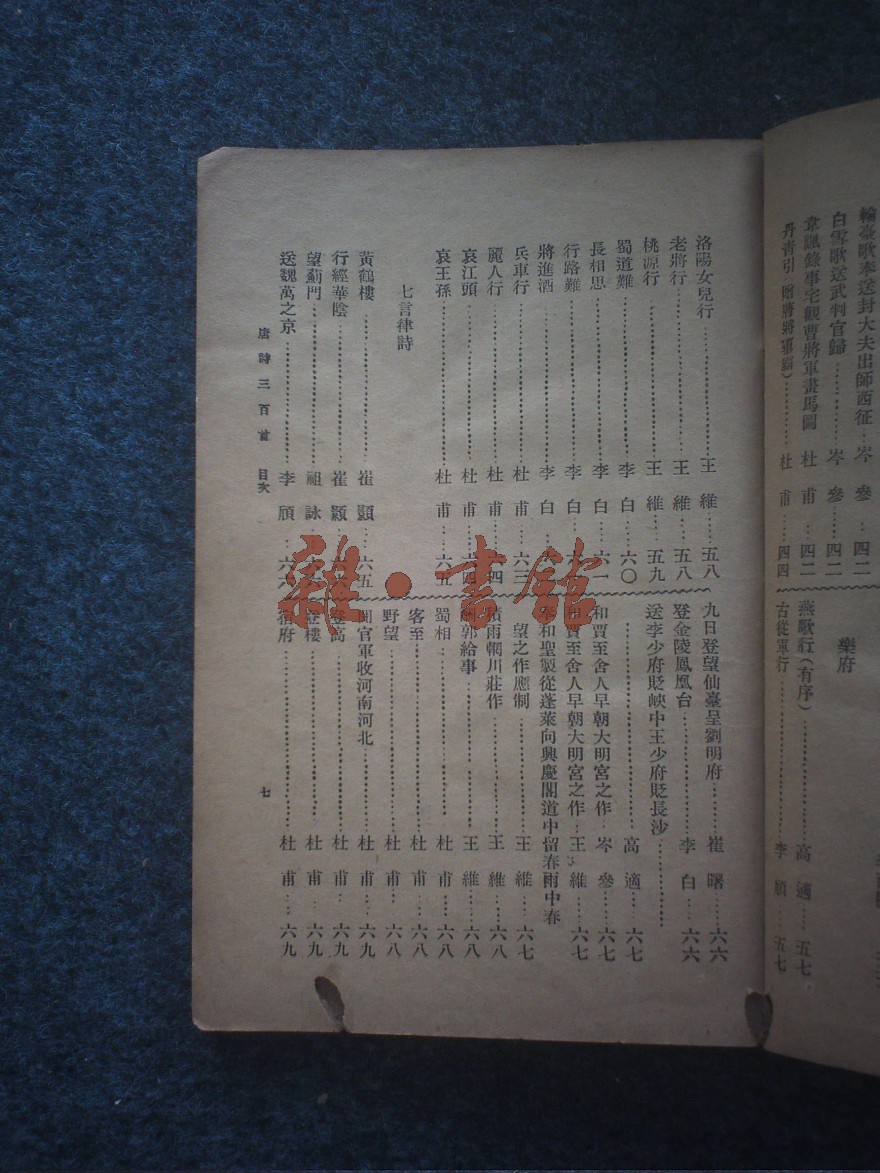 輪臺歌奉送封大夫出師西征…岑 參…四二
白雪歌送武判官歸……岑 參…四二
韋諷錄事宅觀曹將軍畫馬圖 杜 甫…四二
丹青引（贈將軍霸）……杜 甫…四四
樂府
燕歌行（有序）……高 適…五七
古從軍行……李 頎…五七
洛陽女兒行……王 維…五八
老將行……王 維…五八
桃源行……王 維…五九
蜀道難……李 白…六〇
長相思……李 白…六一
行路難……李 白
將進酒……李 白
兵車行……杜 甫…六三
麗人行……杜 甫…四
哀江頭……杜 甫…六四
哀王孫……杜 甫…六五
七言律詩
黃鶴樓……崔 顥…六五
行經華陰……崔 顥
望薊門……祖 詠
送魏萬之京……李 頎…六六
九日登望仙臺呈劉明府……崔 曙…六六
登金陵鳳凰台……李 白…六六
送李少府貶峽中王少府貶長沙……高 適…六七
和賈至舍人早朝大明宮之作…岑 參…六七
和賈至舍人早朝大明宮之作…王 維…六七
奉和聖製從蓬萊向興慶閣道中留春雨中春望之作應制……王 維…六七
積雨輞川莊作……王 維…六八
酬郭給事……王 維…六八
蜀相……杜 甫…六八
客至……杜 甫…六八
野望……杜 甫…六八
聞官軍收河南河北……杜 甫…六九
登高……杜 甫…六九
登樓……杜 甫…六九
宿府……杜 甫…六九
唐詩三百首 目次
七
雜·書館